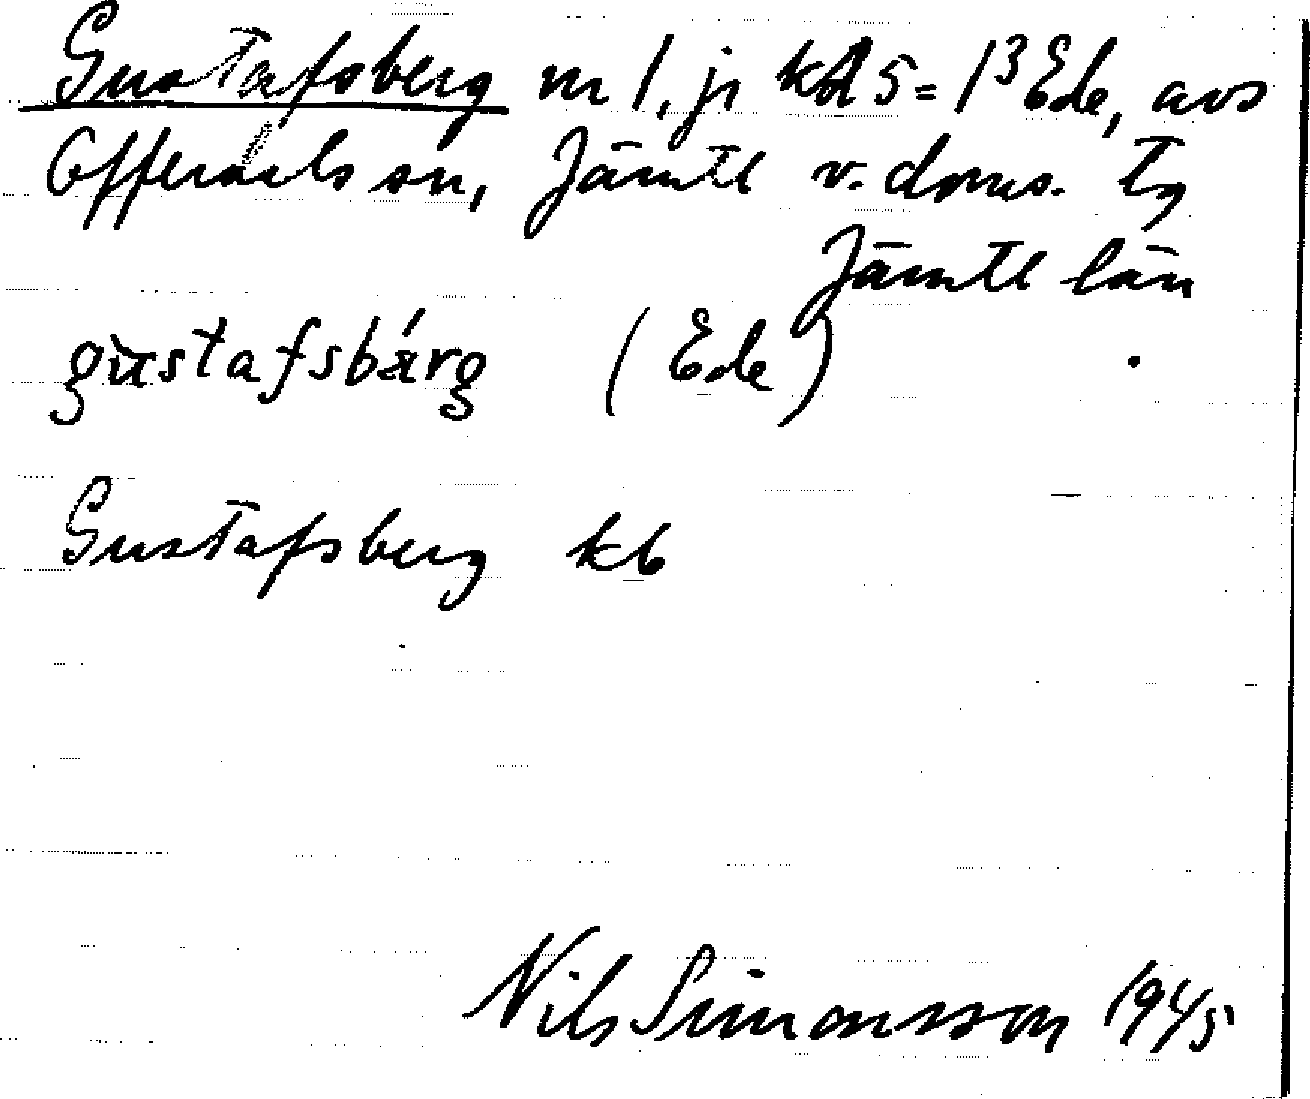 Gustafsberg nr 1, jr kA 5 = 1³ Ede, avs
Offerdals sn, Jämtl v. doms. tg
Jämtl län
gùstafsbárg (Ede)
Gustafsberg kb
Nils Simonsson 1945